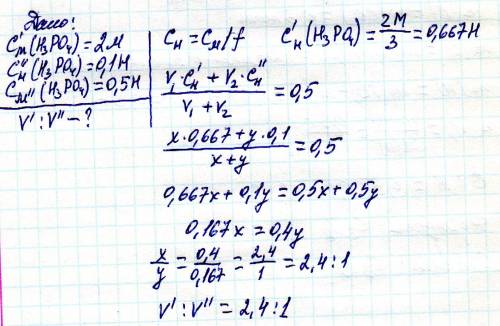 Дано:
C'м(H₃PO₄)=2М
C''н(H₃PO₄)=0,1Н
Cм''(H₃PO₄)=0,5Н
V':V''-?
Cн=Cм/f C'н(H₃PO₄)=2М/3=0,667Н
(V₁·C'н+V₂·C''н)/(V₁+V₂)=0,5
(x·0,667+y·0,1)/(x+y)=0,5
0,667x+0,1y=0,5x+0,5y
0,167x=0,4y
x/y=0,4/0,167=2,4/1=2,4:1
V':V''=2,4:1